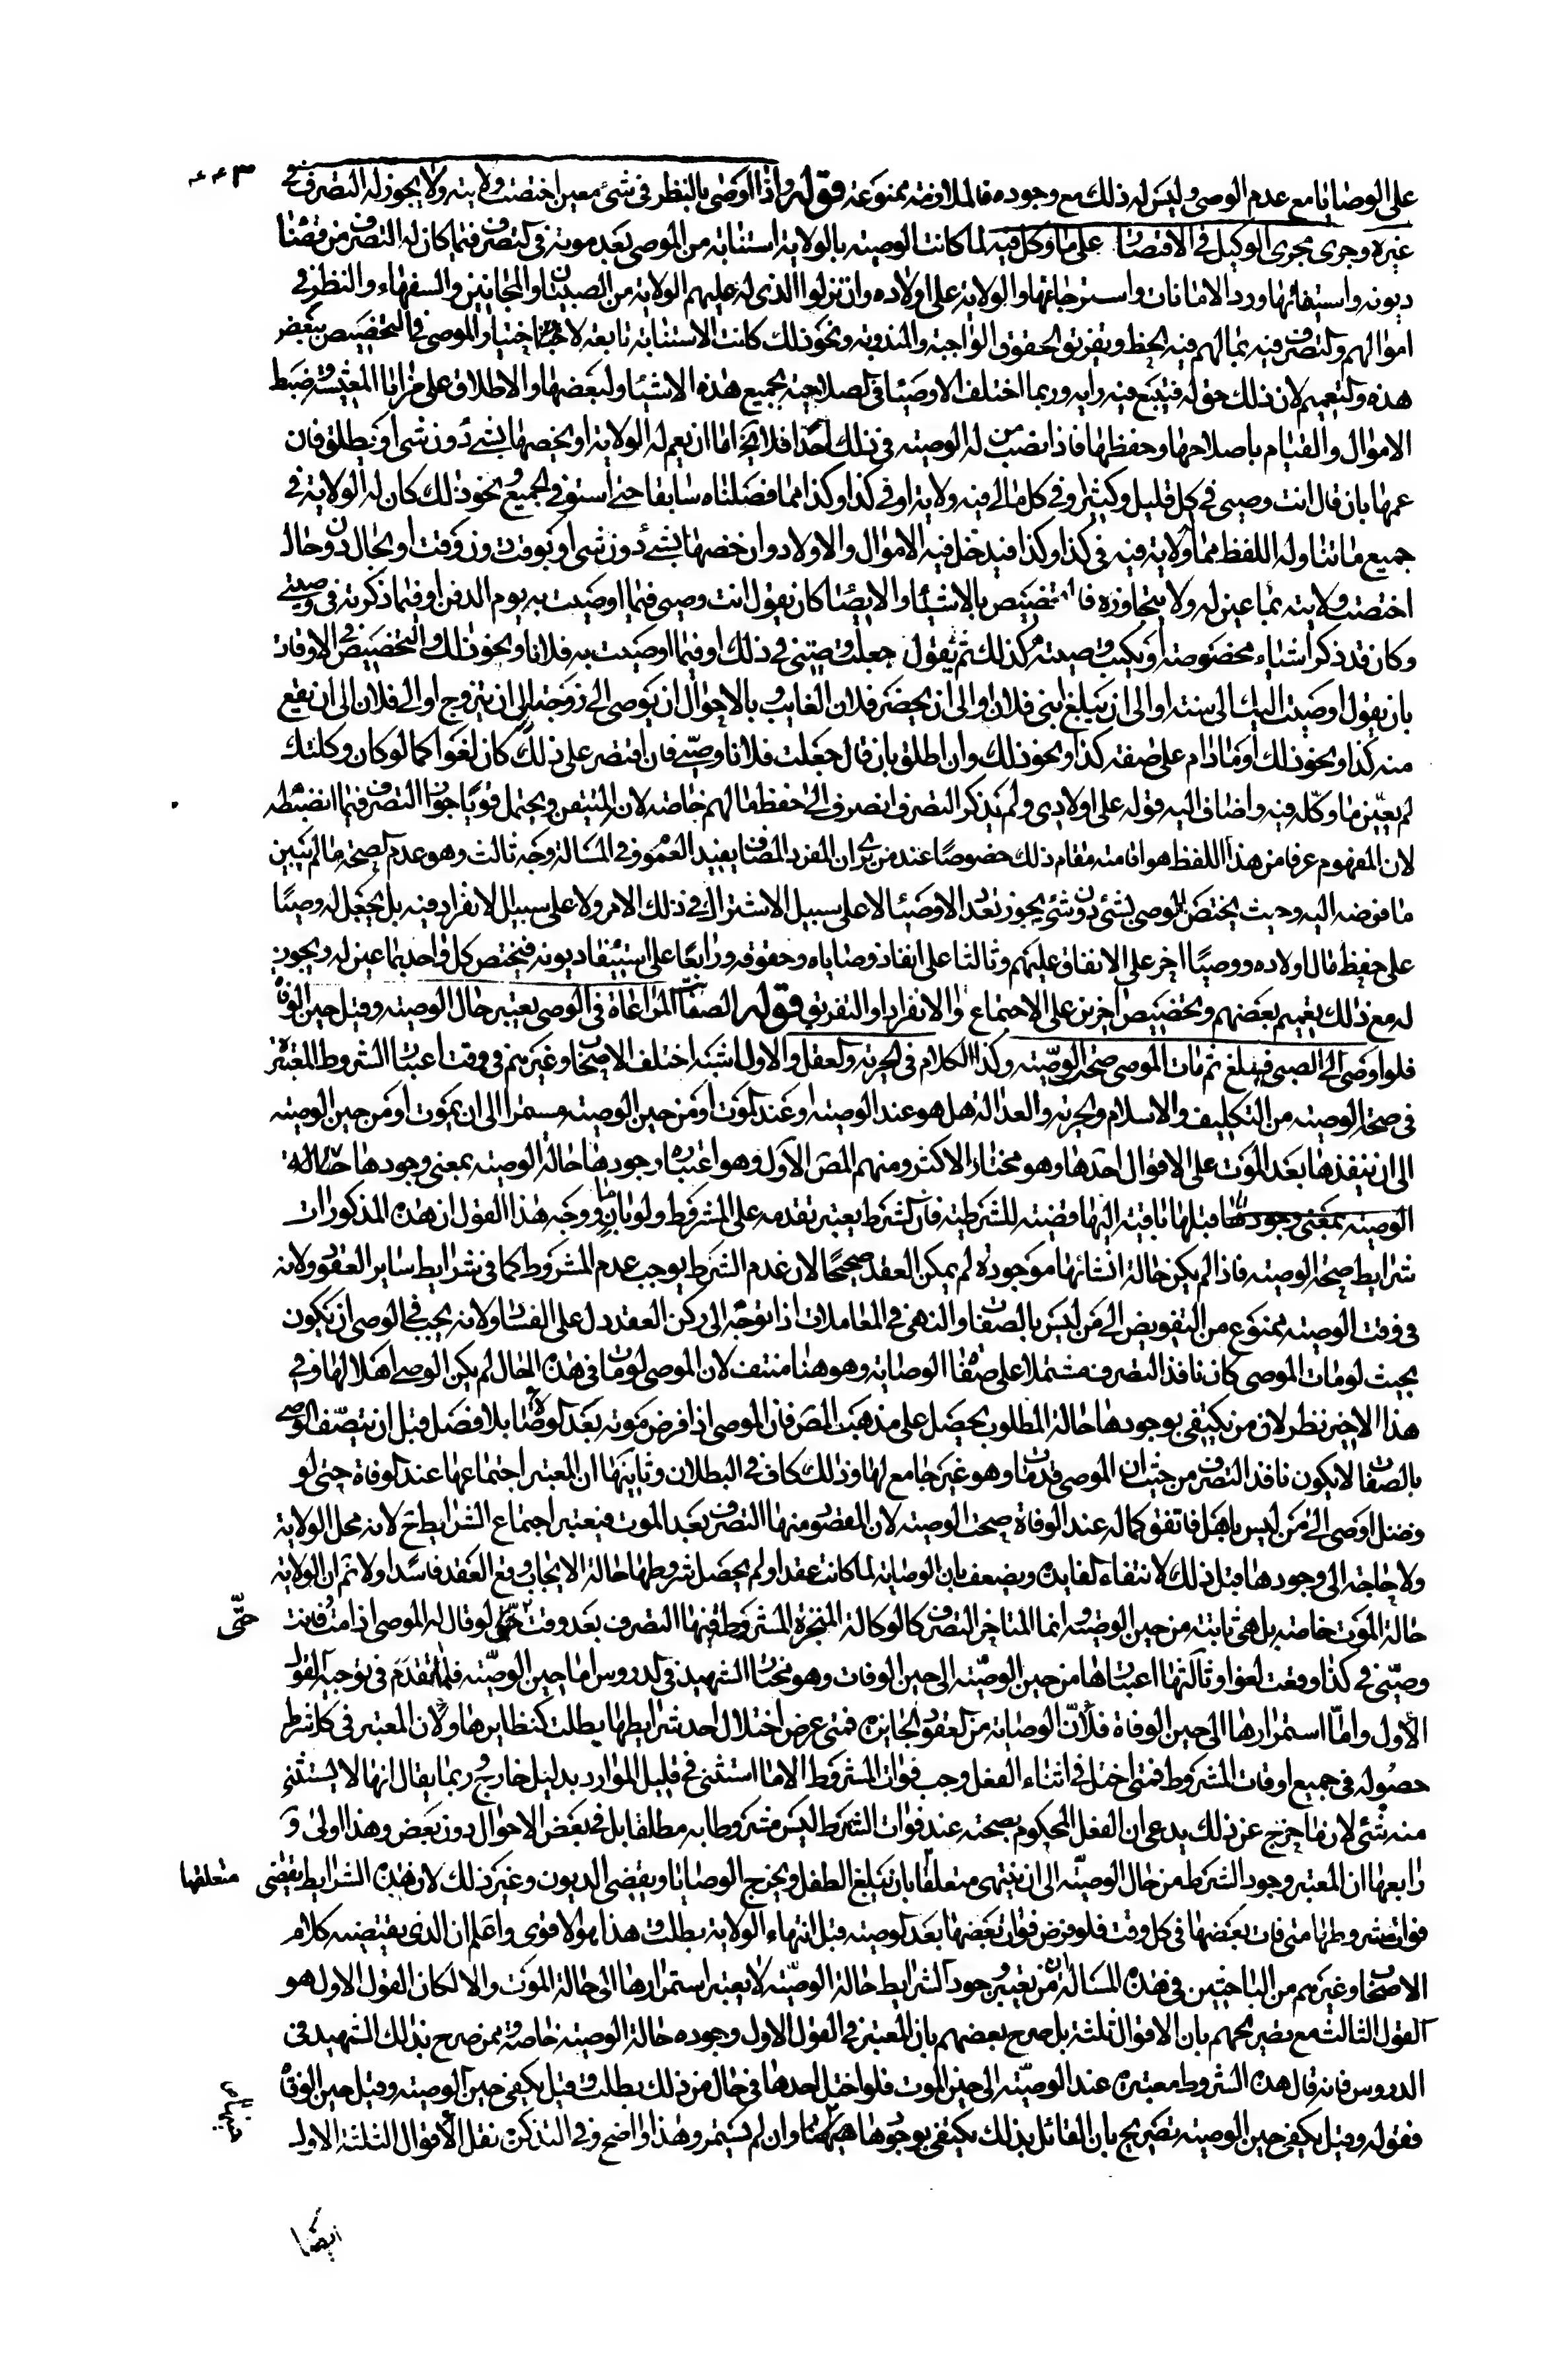 على الوصايا مع عدم الوصي وليس له ذلك مع وجوده فالملازمة ممنوعة قوله واذا اوصى بالنظر في شئ معين اختصت ولايته ولا يجوز له التصرف في
غيره وجرى مجرى الوكيل في الاقتصار على ما وكل فيه لما كانت الوصية بالولاية استنابة من الموصي بعد موته في التصرف فيما كان له التصرف من قضاء
ديونه واستيفائها ورد الامانات واسترجاعها والولاية على اولاده وان نزلوا الذي له عليهم الولاية من الصبيان والمجانين والسفهاء والنظر في
اموالهم والتصرف فيه بما لهم فيه الحظ وتفريق الحقوق الواجبة والمندوبة ونحو ذلك كانت الاستنابة تابعة لاختيار الموصي في التخصيص ببعض
هذه والتعميم لان ذلك حق له فيتبع فيه رايه وربما اختلف الاوصياء في الصلاحية لجميع هذه الاشياء ولبعضها والاطلاق على مزايا المعيشة وضبط
الاموال والقيام باصلاحها وحفظها فاذا نصب من له الوصية في ذلك احدا فلا يخ اما ان يعم له الولاية او يخصها بشئ دون شئ او يطلق فان
عمها بان قال انت وصيي في كل قليل وكثير او في كل ما لي فيه ولاية او في كذا وكذا مما فصلناه سابقا حتى استوفي الجميع ونحو ذلك كان له الولاية في
جميع ما تناوله اللفظ مما له ولاية فيه في كذا وكذا فيدخل فيه الاموال والاولاد وان خصها بشئ دون شئ او بوقت دون وقت او بحال دون حال
اختصت ولايته بما عين له ولا يتجاوزه فالتخصيص بالاشياء والايصاء كان يقول انت وصيي فيما اوصيت به يوم الدفن او فيما ذكرته في وصيتي
وكان قد ذكر اشياء مخصوصة او يكتب وصيته كذلك ثم يقول جعلت وصيتي في ذلك او فيما اوصيت به فلانا ونحو ذلك والتخصيص في الاوقات
بان يقول اوصيت اليك الى سنة او الى ان يبلغ ابني فلان او الى ان يحضر فلان الغايب وبالاحوال ان يوصي الى زوجته الى ان يتزوج او الى فلان الى ان يقع
منه كذا ونحو ذلك او ما دام على صفة كذا ونحو ذلك وان اطلق بان قال جعلت فلانا وصيي فان اقتصر على ذلك كان لغوا كما لو كان وكلتك
لم يعين ما وكله فيه واضاف اليه قوله على اولادي ولم يذكر التصرف انصرف الى حفظ مالهم خاصة لان المتيقن ويحتمل قويا جواز التصرف فيما انضبطه
لان المفهوم عرفا من هذا اللفظ هو اقامته مقام ذلك خصوصا عند من يرى ان المفرد المضاف يفيد العموم وفي المسالة وجه ثالث وهو عدم الصحة ما لم يبين
ما فوضه اليه وحيث يختص الوصي بشئ دون شئ يجوز تعدد الاوصياء لا على سبيل الاشتراك في ذلك الامر ولا على سبيل الانفراد فيه بل يجعل له وصيا
على حفظ مال اولاده ووصيا اخر على الانفاق عليهم وثالثا على انفاذ وصاياه وحقوقه ورابعا على استيفاء ديونه فيختص كل واحد بما عين له ويجوز
له مع ذلك تعميم بعضهم وتخصيص اخرين على الاجتماع والانفراد او التفريق قوله الصفات المراعاة في الوصي يعتبر حال الوصية وقيل حين الوفاة
فلو اوصى الى الصبي فبلغ ثم مات الموصي صحت الوصية وكذا الكلام في الحرية والعقل والاول اشبه اختلف الاصحاب وغيرهم في وقت اعتبار الشروط المعتبرة
في صحة الوصية من التكليف والاسلام والحرية والعدالة هل هو عند الوصية او عند الموت او من حين الوصية مستمرا الى ان يموت او من حين الوصية
الى ان ينفذها بعد الموت على الاقوال احدها وهو مختار الاكثر ومنهم المص الاول وهو اعتبار وجودها حالة الوصية بمعنى وجودها حالة
الوصية بمعنى وجودها قبلها باقية اليها قضية للشرطية فان الشرط يعتبر تقدمه على المشروط ولو بان ما ووجه هذا القول ان هذه المذكورات
شرايط صحة الوصية فاذا لم يكن حالة انشائها موجودة لم يمكن العقد صحيحا لان عدم الشرط يوجب عدم المشروط كما في شرايط ساير العقود ولانه
في وقت الوصية ممنوع من التفويض الى من ليس بالصفات والنهي في المعاملات اذا توجه الى ركن العقد دل على الفساد ولانه يجب في الوصي ان يكون
بحيث لو مات الموصي كان نافذ التصرف مشتملا على صفات الوصاية وهو هنا منتف لان الموصي لو مات في هذه الحال لم يكن الوصي اهلا لها وفي
هذا الاخير نظر لان من يكتفي بوجودها حالة المطلوب يحصل على مذهب المص فان الموصي اذا فرض موته بعد الوصاة بلا فصل قبل ان يتصف الوصي
بالصفات لا يكون نافذ التصرف من حيث ان الموصي قد مات وهو غير جامع لها وذلك كاف في البطلان وثانيها ان المعتبر اجتماعها عند الوفاة حتى لو
اوصى الى من ليس باهل فاتفق كماله عند الوفاة صحت الوصية لان المقصود منها التصرف بعد الموت فيعتبر اجتماع الشرايط ح لانه محل الولاية
ولا حاجة الى وجودها قبل ذلك لانتفاء الفايدة ويضعف بان الوصاية لما كانت عقدا ولم يحصل شروطها حالة الايجاب وقع العقد فاسدا ولا ثم ان الولاية
حالة الموت خاصة بل هي ثابتة من حين الوصية وانما المتاخر التصرف كالوكالة المنجزة المشروط فيها التصرف بعد وقت حتى لو قال له الموصي اذا مت فانت حتى
وصيي في كذا وقعت لغوا وثالثها اعتبارها من حين الوصية الى حين الوفات وهو مختار الشهيد في الدروس اما حين الوصية فلما تقدم في توجيه القول
الاول واما استمرارها الى حين الوفاة فلان الوصاية من العقود الجايزة فمتى عرض اختلال احد شرايطها بطلت كنظايرها ولان المعتبر في كل شرط
حصوله في جميع اوقات المشروط فمتى اختل في اثناء الفعل وجب فوات المشروط الا ما استثني في قليل الموارد بدليل خارج وربما يقال انها لا يستثنى
منه شئ لان ما خرج عن ذلك يدعى ان الفعل المحكوم بصحته عند فوات الشرط ليس مشروطا به مطلقا بل في بعض الاحوال دون بعض وهذا اولى و
رابعها ان المعتبر وجود الشرط من حال الوصية الى ان ينتهي متعلقها بان يبلغ الطفل ويخرج الوصايا ويقضي الديون وغير ذلك لان هذه الشرايط يقتضي متعلقها
فوات مشروطها متى فات بعضها في كل وقت فلو فرض فوات بعضها بعد الوصية قبل انتهاء الولاية بطلت وهذا هو الاقوى واعلم ان الذي يقتضيه كلام
الاصحاب وغيرهم من الباحثين في هذه المسالة ان من يعتبر وجود الشرايط حالة الوصية لا يعتبر استمرارها الى حالة الموت والا لكان القول الاول هو
القول الثالث مع تصريحهم بان الاقوال ثلثة بل صرح بعضهم بان المعتبر في القول الاول وجوده حالة الوصية خاصة وممن صرح بذلك الشهيد في
الدروس فانه قال هذه الشروط معتبرة عند الوصية الى حين الموت فلو اختل احدها في حال من ذلك بطلت وقيل يكفي حين الوصية وقيل حين الوفاة
فقوله وقيل يكفي حين الوصية تصريح بان القائل بذلك يكتفي بوجودها وان لم يستمر وهذا واضح وفي التذكرة نقل الاقوال الثلثة الاول
ايضا